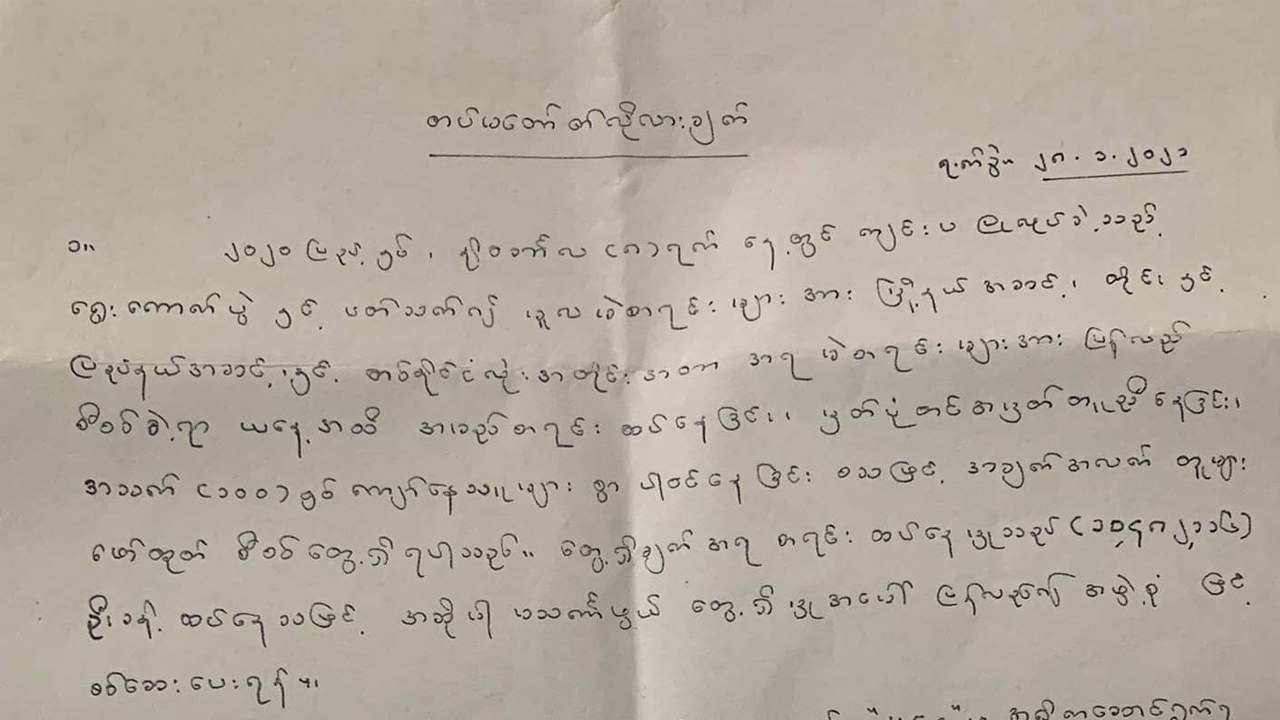 တပ်မတော်၏လိုလားချက်
ရက်စွဲ။ ၂၈.၁.၂၀၂၁
၁။ ၂၀၂၀ ပြည့်နှစ်၊ နိုဝင်ဘာလ (၈) ရက် နေ့တွင် ကျင်းပ ပြုလုပ်ခဲ့သည့်
ရွေးကောက်ပွဲ နှင့် ပတ်သက်၍ မူလ မဲစာရင်းများအား မြို့နယ်အဆင့်၊ တိုင်း၊ နှင့်
ပြည်နယ်အဆင့်၊ နှင့် တစ်နိုင်ငံလုံးအတိုင်းအတာ အရ မဲစာရင်းများအား ပြန်လည်
စိစစ်ခဲ့ရာ ယနေ့အထိ အမည်စာရင်း ထပ်နေခြင်း၊ မှတ်ပုံတင်အမှတ်တူညီနေခြင်း၊
အသက် (၁၀၀) နှစ် ကျော်နေသူများ စွာ ပါဝင်နေခြင်း စသဖြင့် အချက်အလက် တူများ
ဖော်ထုတ် စိစစ်တွေ့ရှိရပါသည်။ တွေ့ရှိချက်အရ စာရင်း ထပ်နေမှုသည်
ဦးခန့် ထပ်နေသဖြင့် အဆိုပါ မသင်္ကာဖွယ် တွေ့ရှိမှုအပေါ် ပြန်လည်၍ အဖွဲ့စုံ ဖြင့်
စစ်ဆေးပေးရန်။